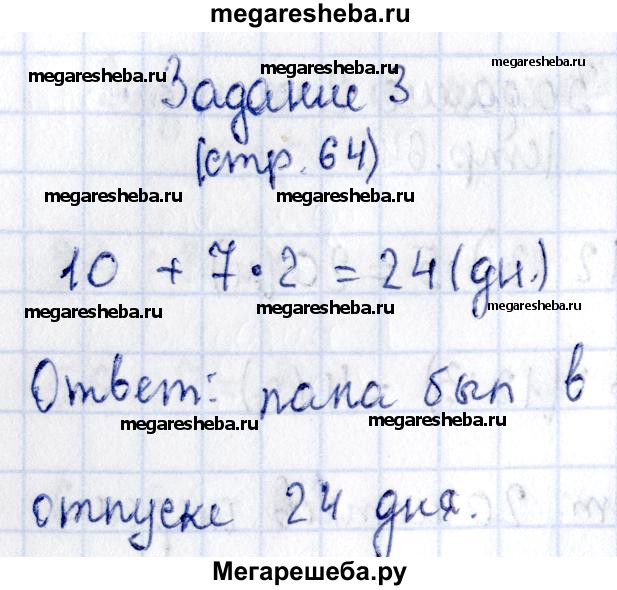 megaresheba.ru
megaresheba.ru megaresheba.ru megaresheba.ru
Задание 3
(стр. 64)
megaresheba.ru megaresheba.ru
10 + 7 · 2 = 24 (дн.)
megaresheba.ru megaresheba.ru megaresheba.ru
Ответ: папа был в
megaresheba.ru megaresheba.ru
отпуске 24 дня.
Мегарешеба.ру